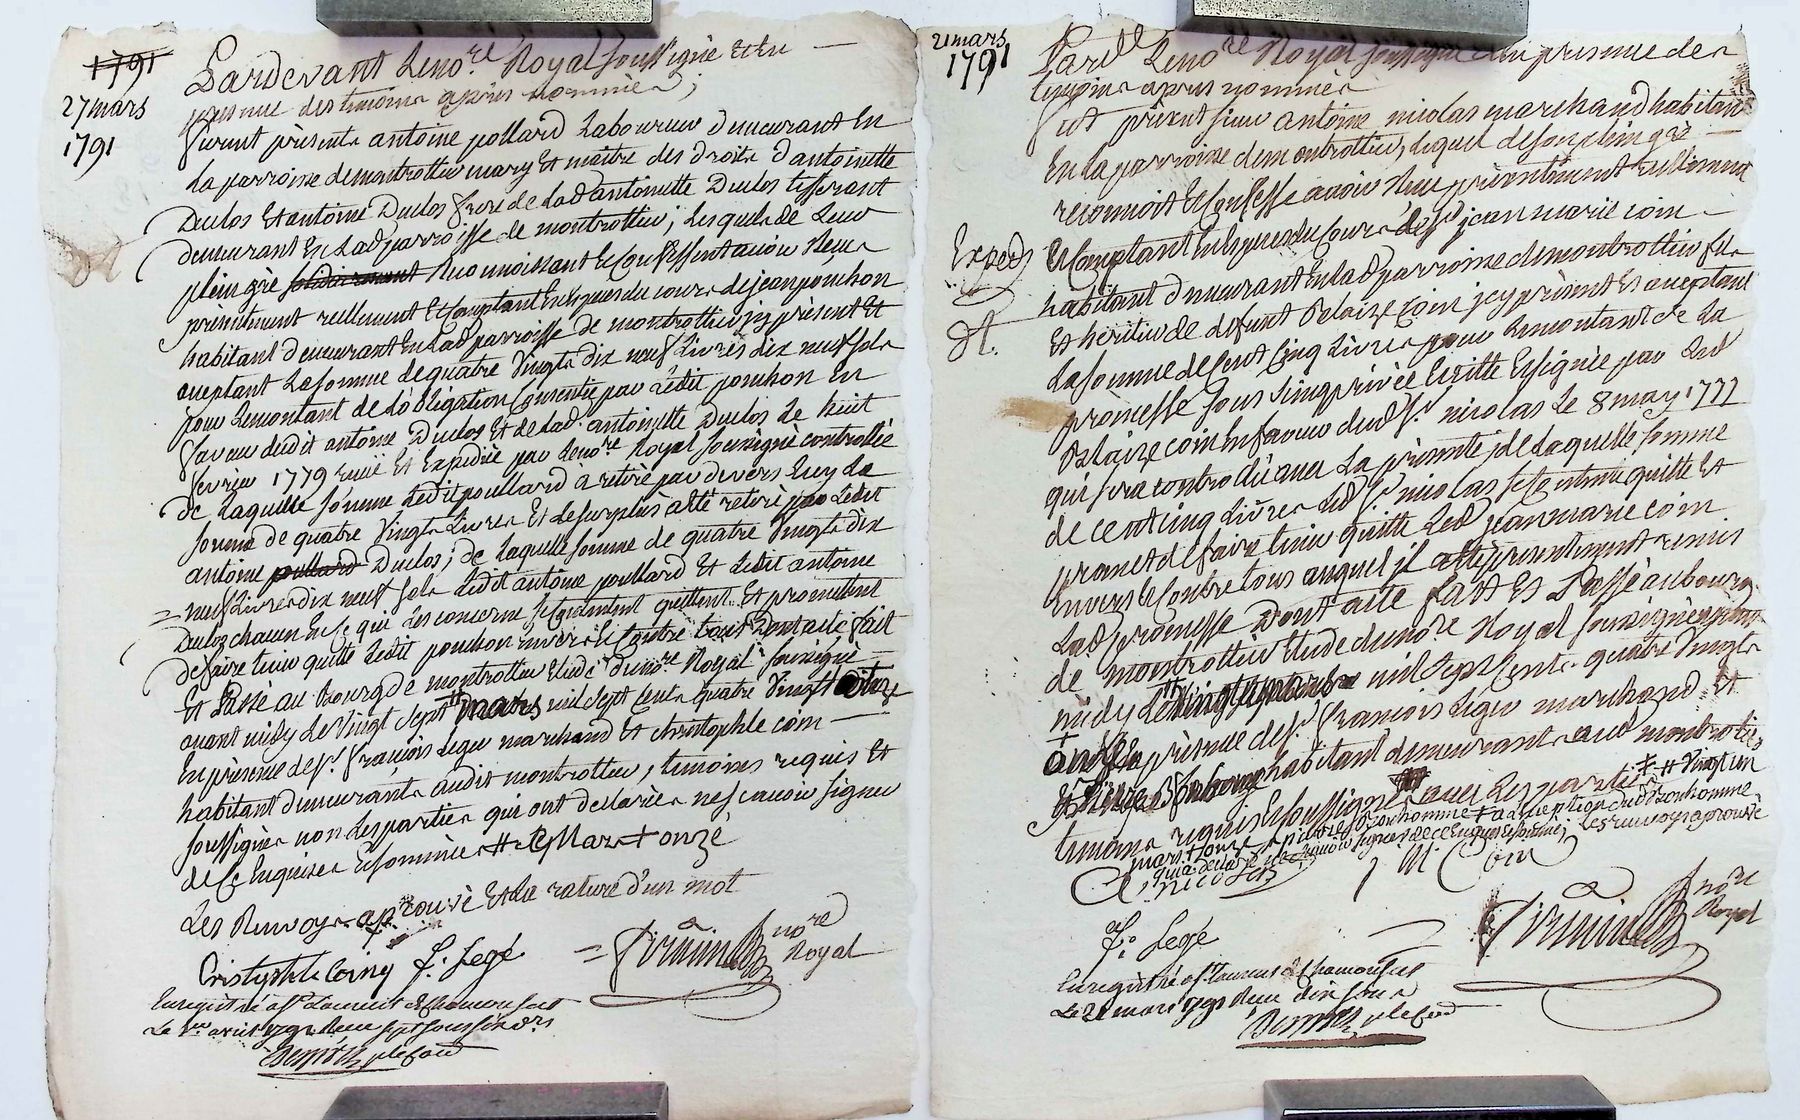 1791
27 mars
1791
Pardevant Le no.re Royal soussigné Et En
presence des temoins après nommés ;
furent présents antoine poullard Laboureur demeurant En
La parroisse de montrottier mary Et maitre des droits d'antoinette
Duclos Et antoine Duclos frere de Lad antoinette Duclos tisserant
demeurant En Lad parroisse de montrottier ; Lesquels de Leur
plein gré solidairement Reconnoissent Et Confessent avoir Receu
présentement reellement Et Comptant En Especes du cours de jean ponchon
habitant demeurant En Lad parroisse de montrottier jcy présent Et
aceptant La somme de quatre Vingts dix neuf Livres dix neuf sols
pour Le montant de L'obligation Consentie par Ledit ponchon En
faveur dudit antoine Duclos Et de Lad. antoinette Duclos Le huit
fevrier 1779 reçüe Et Expediée par Le no.re Royal soussigné controllée
de Laquelle somme Ledit poullard à retiré par divers Envoy La
somme de quatre Vingts Livres Et Le surplus a été retiré par Ledit
antoine poullard Duclos ; de Laquelle somme de quatre Vingts dix
= neuf Livres dix neuf sols Ledit antoine poullard Et Ledit antoine
Duclos chacun En ce qui Les concerne se Contentent quittent Et promettent
de faire tenir quitte Ledit ponchon Envers Et Contre tous Dont acte fait
Et Passé au Bourg de montrottier Etude du no.re Royal soussigné
avant midy Le Vingt sept # mars mil sept Cents quatre Vingt onze
En présence de s.r françois Leger marchand Et christophle coin
habitant demeurants audit montrottier, temoins requis Et
soussignés non Les parties qui ont declarées ne sçavoir signer
de Ce Enquises Et sommées # Mars + onze
Les Renvoys aprouvé Et La rature d'un mot
Cristophle Coiny f. Legé
= no.re Royal
Enregistré a S.t Laurent de Chamousset
Le 1.er avril 1791 Receu sept sous six d.rs
21 mars
1791
Exped
Pard.t Le no.re Royal soussigné Et En presence des
temoins après nommés
fut présent sieur antoine nicolas marchand habitant
En La parroisse de montrottier, Lequel de son plein gré
reconnoit Et Confesse avoir Receu présentement reellement
Et Comptant En Especes du Cours de s.r jean marie coin
habitant demeurant En Lad parroisse de montrottier fils
Et héritier de defunt Blaize Coin jcy présent Et aceptant
La somme de Cent Cinq Livres pour Le montant de La
promesse sous seing privée Ecritte Et signée par Led
Blaize coin En faveur dud s.r nicolas Le 8 may 1777
qui sera controllé avec La présente ; de Laquelle somme
de cent cinq Livres Led s.r nicolas se Contente quitte Et
promet de faire tenir quitte Led jean marie coin
Envers Et Contre tous auquel jl a été présentement remis
Lad promesse Dont acte fait Et Passé au bourg
de montrottier Etude du no.re Royal soussigné
midy Le # mil sept Cents quatre Vingts
onze En présence de s.r françois Leger marchand Et
habitant demeurants aud montrottier
temoins requis Et soussignés avec Les parties # Vingt un
mars + onze bonhomme + a L'exception dud bonhomme
qui a declaré ne sçavoir signer de ce Enquis Et sommé ; Les renvoys aprouvé
A. nicolas J M Coin
f. Legé
no.re Royal
Enregistré a S.t Laurent de Chamousset
Le 21 mars 1791 Receu dix sous